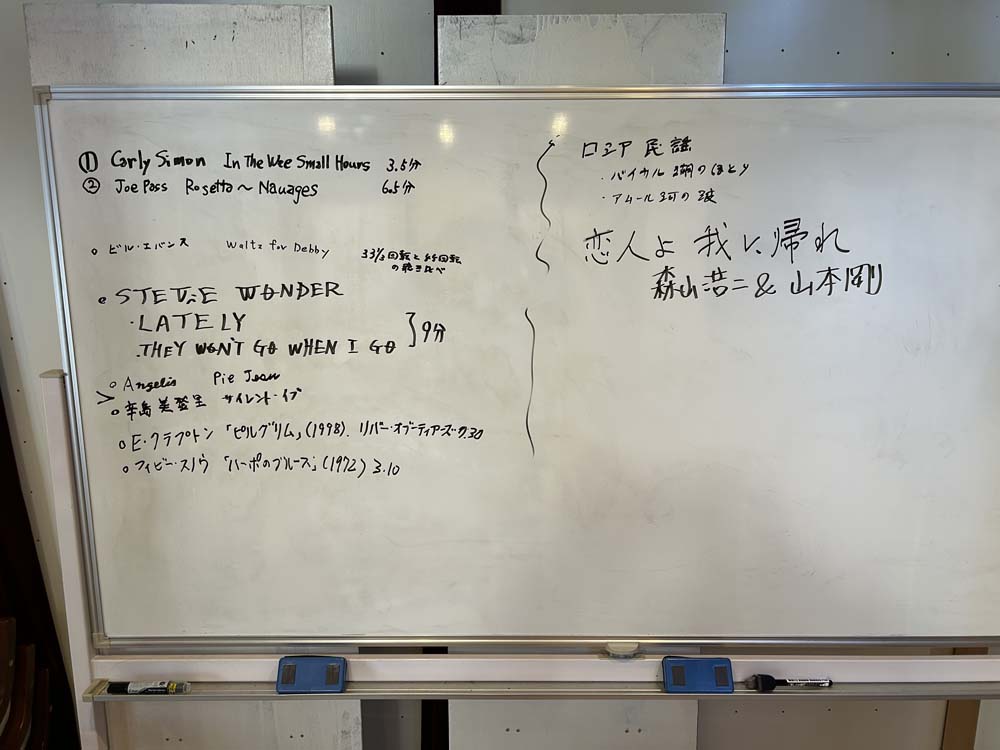 ① Carly Simon In The Wee Small Hours 3.5分
② Joe Pass Rosetta〜Nauages 6.5分
○ ビル・エバンス Waltz for Debby 33 1/3回転と45回転
の聴き比べ
○ STEVIE WONDER
・LATELY
・THEY WON'T GO WHEN I GO
9分
○ Angelis Pie Jesu
○ 辛島美登里 サイレント・イブ
○ E・クラプトン 「ピルグリム」(1998). リバー・オブ・ティアーズ・7.30
○ フィビー・スノウ 「ハーポのブルース」(1972) 3.10
ロシア民謡
・バイカル湖のほとり
・アムール河の波
恋人よ 我に帰れ
森山浩二 & 山本剛